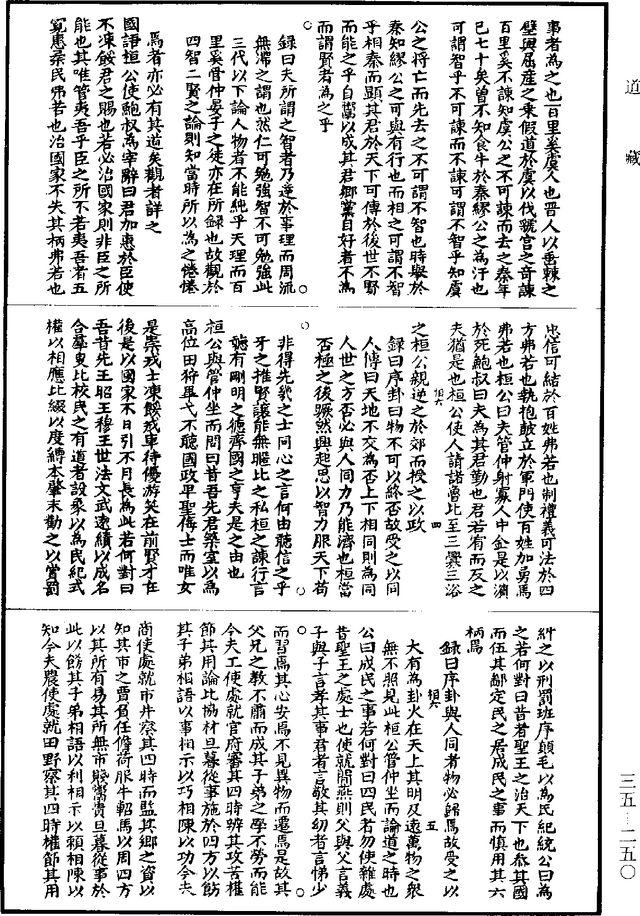 道藏
事者為之也百里奚虞人也晉人以垂棘之
璧與屈產之乘假道於虞以伐虢宮之奇諫
百里奚不諫知虞公之不可諫而去之秦年
已七十矣曾不知食牛於秦繆公之為汙也
可謂智乎不可諫而不諫可謂不智乎知虞
公之將亡而先去之不可謂不智也時舉於
秦知繆公之可與有行也而相之可謂不智
乎相秦而顯其君於天下可傳於後世不賢
而能之乎自鬻以成其君鄉黨自好者不為
而謂賢者為之乎
錄曰夫所謂之智者乃達於事理而周流
無滯之謂也然仁可勉強智不可勉強此
三代以下論人物者不能純乎天理而百
里奚管仲晏子之徒亦在所錄也故觀於
四智二賢之論則知當時所以為之惓惓
焉者亦必有其道矣觀者詳之
國語桓公使鮑叔為宰辭曰君加惠於臣使
不凍餒君之賜也若必治國家則非臣之所
能也其唯管夷吾乎臣之所不若夷吾者五
寬惠柔民弗若也治國家不失其柄弗若也
忠信可結於百姓弗若也制禮義可法於四
方弗若也執枹鼓立於軍門使百姓加勇焉
弗若也桓公曰夫管仲射寡人中金是以濱
於死鮑叔曰夫為其君勤也君若宥而反之
夫猶是也桓公使人請諸魯比至三釁三浴
之桓公親逆之於郊而授之以政
相六 四
錄曰序卦曰物不可以終否故受之以同
人傳曰天地不交為否上下相同則為同
人世之方否必與人同力乃能濟也桓當
否極之後蹶然興起思以智力服天下苟
非得先幾之士同心之言何由聽信之乎
牙之推賢讓能無比之私桓之諫行言
聽有剛明之德齊國之亨夫是之由也
桓公與管仲坐而問曰昔吾先君築室以為
高位田狩畢弋不聽國政卑聖侮士而唯女
是崇戎士凍餒戎車待優游笑在前賢才在
後是以國家不日引不月長為此若何對曰
吾昔先王昭王穆王世法文武遠績以成名
合羣叟比校民之有道者設象以為民紀式
權以相應比綴以度竱本肇末勸之以賞罰
糾之以刑罰班序顛毛以為民紀統公曰為
之若何對曰昔者聖王之治天下也叅其國
而伍其鄙定民之居成民之事而慎用其六
柄焉
錄曰序卦與人同者物必歸焉故受之以
相六 五
大有為卦火在天上其明及遠萬物之衆
無不照見此桓公管仲坐而論道之時也
公曰成民之事若何對曰四民者勿使雜處
昔聖王之處士也使就閒燕則父與父言義
子與子言孝其事君者言敬其幼者言悌少
而習焉其心安焉不見異物而遷焉是故其
父兄之教不肅而成其子弟之學不勞而能
今夫工使處就官府審其四時辨其功苦權
節其用論比協材旦暮從事施於四方以飭
其子弟相語以事相示以巧相陳以功令夫
商使處就市井察其四時而監其鄉之資以
知其市之賈負任擔荷服牛軺馬以周四方
以其所有易其所無市賤鬻貴旦暮從事於
此以飭其子弟相語以利相示以賴相陳以
知今夫農使處就田野察其四時權節其用
三五—二五〇